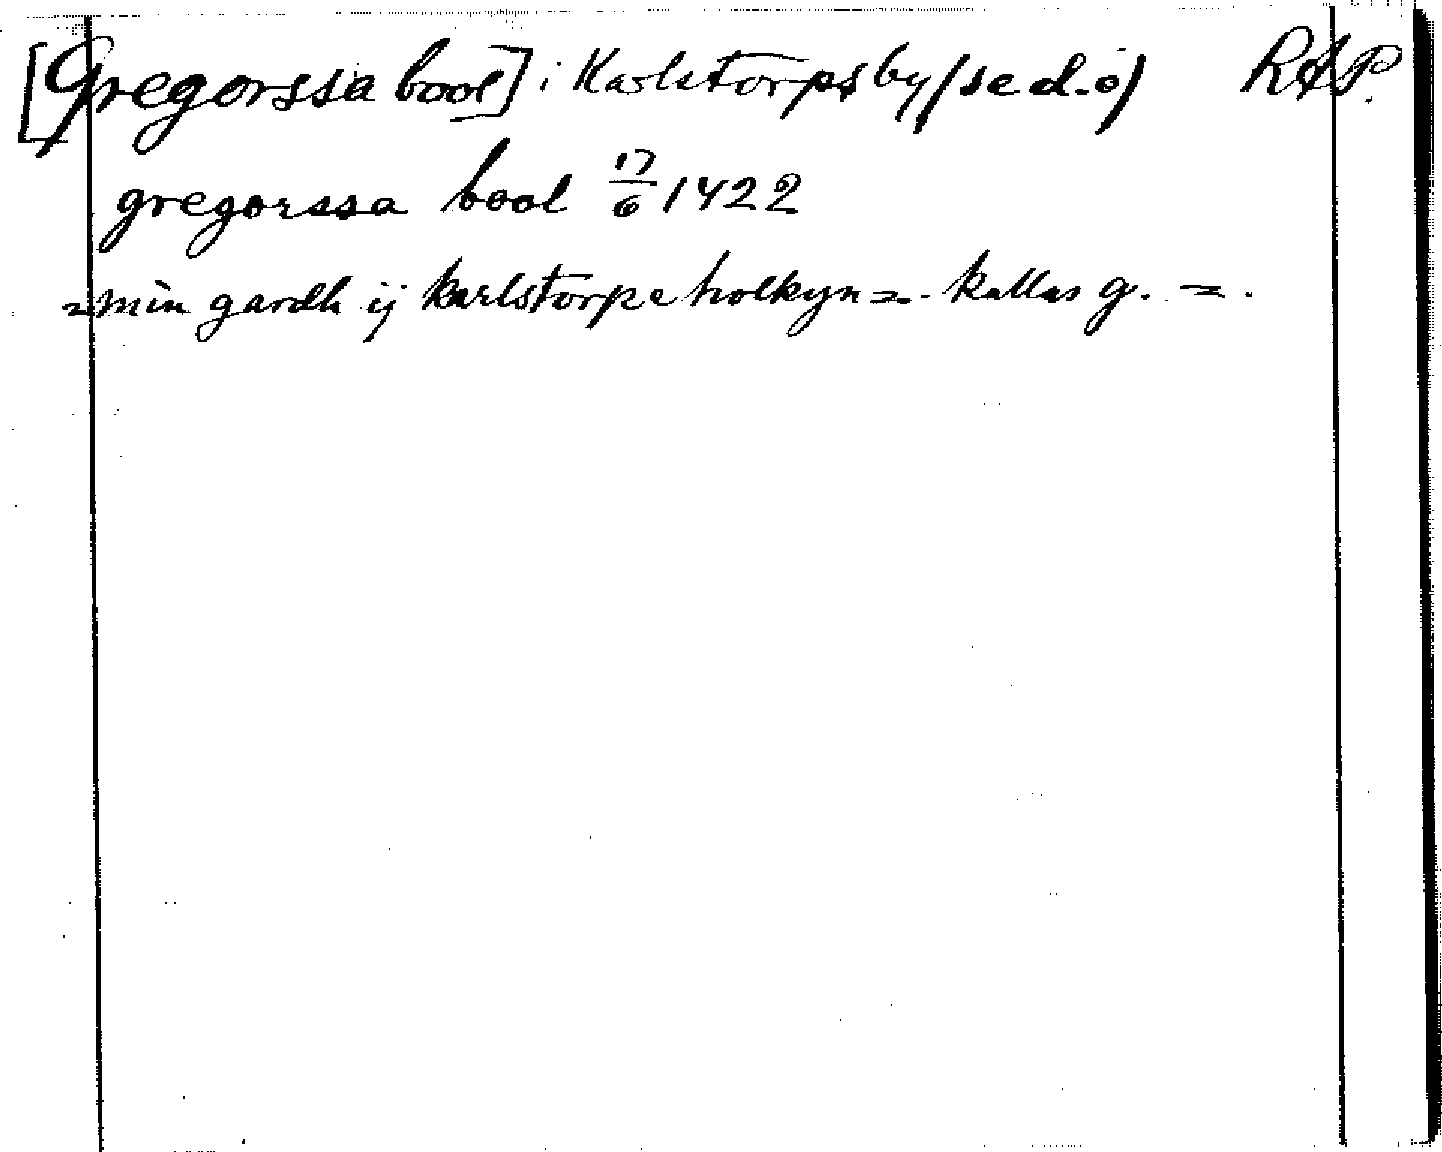 [Gregorssa bool] i Karlstorps by (se d.o) RAP.
gregorssa bool 17/6 1422
=min gardh ij karlstorpe holkyn =. kallas g. =.